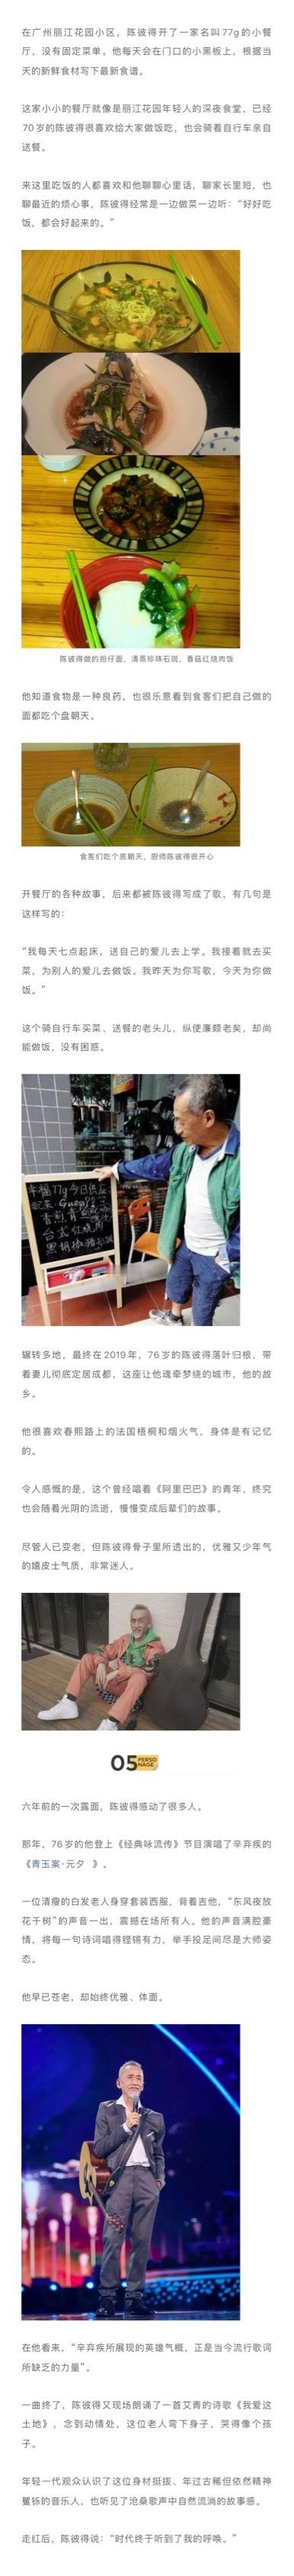 在广州丽江花园小区，陈彼得开了一家名叫77g的小餐
厅，没有固定菜单。他每天会在门口的小黑板上，根据当
天的新鲜食材写下最新食谱。
这家小小的餐厅就像是丽江花园年轻人的深夜食堂，已经
70岁的陈彼得很喜欢给大家做饭吃，也会骑着自行车亲自
送餐。
来这里吃饭的人都喜欢和他聊聊心里话，聊家长里短，也
聊最近的烦心事，陈彼得经常是一边做菜一边听：“好好吃
饭，都会好起来的。”
陈彼得做的担仔面，清蒸珍珠石斑，香菇红烧肉饭
他知道食物是一种良药，也很乐意看到食客们把自己做的
面都吃个盘朝天。
食客们吃个底朝天，厨师陈彼得很开心
开餐厅的各种故事，后来都被陈彼得写成了歌，有几句是
这样写的：
“我每天七点起床，送自己的爱儿去上学。我接着就去买
菜，为别人的爱儿去做饭。我昨天为你写歌，今天为你做
饭。”
这个骑自行车买菜、送餐的老头儿，纵使廉颇老矣，却尚
能做饭，没有困惑。
幸福77g今日供应
台式红烧肉
辗转多地，最终在2019年，76岁的陈彼得落叶归根，带
着妻儿彻底定居成都，这座让他魂牵梦绕的城市，他的故
乡。
他很喜欢春熙路上的法国梧桐和烟火气，身体是有记忆
的。
令人感慨的是，这个曾经唱着《阿里巴巴》的青年，终究
也会随着光阴的流逝，慢慢变成后辈们的故事。
尽管人已变老，但陈彼得骨子里所透出的，优雅又少年气
的嬉皮士气质，非常迷人。
05 PERSO
NAGE
六年前的一次露面，陈彼得感动了很多人。
那年，76岁的他登上《经典咏流传》节目演唱了辛弃疾的
《青玉案·元夕 》。
一位清瘦的白发老人身穿套装西服，背着吉他，“东风夜放
花千树”的声音一出，震撼在场所有人。他的声音满腔豪
情，将每一句诗词唱得铿锵有力，举手投足间尽是大师姿
态。
他早已苍老，却始终优雅、体面。
在他看来，“辛弃疾所展现的英雄气概，正是当今流行歌词
所缺乏的力量”。
一曲终了，陈彼得又现场朗诵了一首艾青的诗歌《我爱这
土地》，念到动情处，这位老人弯下身子，哭得像个孩
子。
年轻一代观众认识了这位身材挺拔、年过古稀但依然精神
矍铄的音乐人，也听见了沧桑歌声中自然流淌的故事感。
走红后，陈彼得说：“时代终于听到了我的呼唤。”